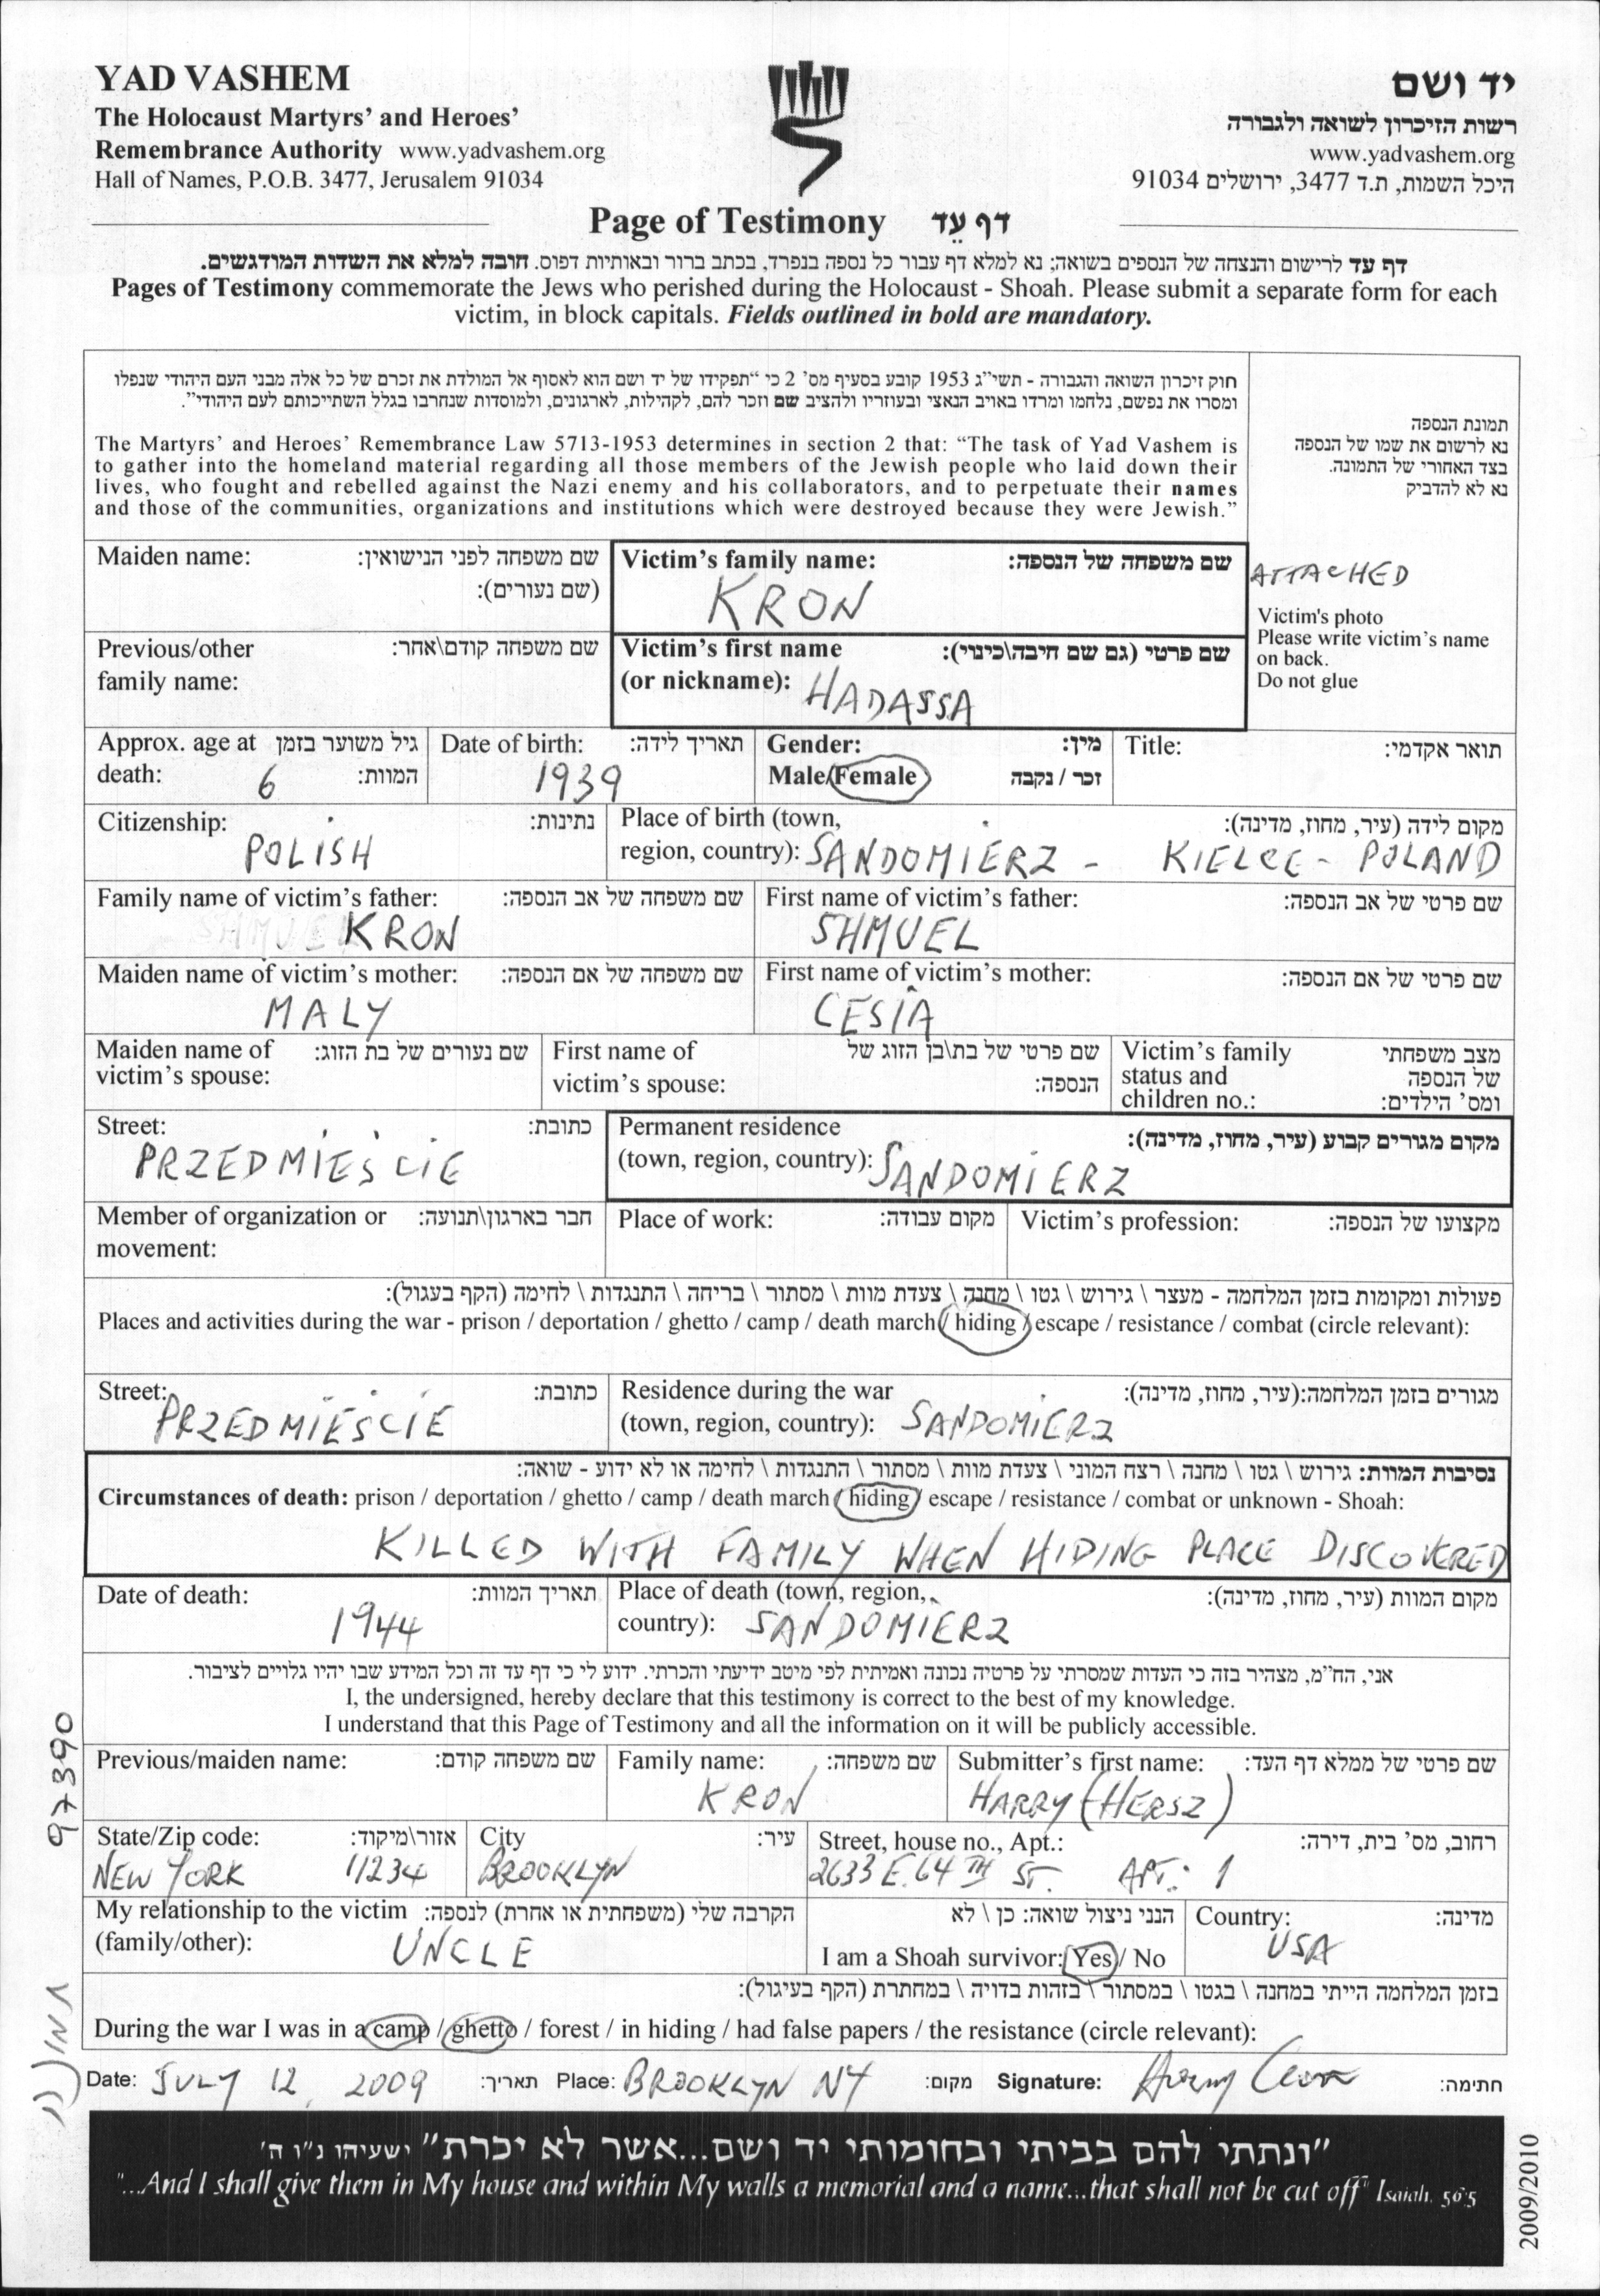 YAD VASHEM
The Holocaust Martyrs’ and Heroes’
Remembrance Authority www.yadvashem.org
Hall of Names, P.O.B. 3477, Jerusalem 91034
יד ושם
רשות הזיכרון לשואה ולגבורה
www.yadvashem.org
היכל השמות, ת.ד 3477, ירושלים 91034
Page of Testimony דף עֵד
דף עד לרישום והנצחה של הנספים בשואה; נא למלא דף עבור כל נספה בנפרד, בכתב ברור ובאותיות דפוס. חובה למלא את השדות המודגשים.
Pages of Testimony commemorate the Jews who perished during the Holocaust - Shoah. Please submit a separate form for each
victim, in block capitals. Fields outlined in bold are mandatory.
חוק זיכרון השואה והגבורה - תשי״ג 1953 קובע בסעיף מס' 2 כי “תפקידו של יד ושם הוא לאסוף אל המולדת את זכרם של כל אלה מבני העם היהודי שנפלו
ומסרו את נפשם, נלחמו ומרדו באויב הנאצי ובעוזריו ולהציב שם וזכר להם, לקהילות, לארגונים, ולמוסדות שנחרבו בגלל השתייכותם לעם היהודי”.
The Martyrs’ and Heroes’ Remembrance Law 5713-1953 determines in section 2 that: “The task of Yad Vashem is
to gather into the homeland material regarding all those members of the Jewish people who laid down their
lives, who fought and rebelled against the Nazi enemy and his collaborators, and to perpetuate their names
and those of the communities, organizations and institutions which were destroyed because they were Jewish.”
תמונת הנספה
נא לרשום את שמו של הנספה
בצד האחורי של התמונה.
נא לא להדביק
ATTACHED
Victim's photo
Please write victim’s name
on back.
Do not glue
Maiden name: שם משפחה לפני הנישואין:
(שם נעורים):
Victim’s family name: שם משפחה של הנספה:
KRON
Previous/other שם משפחה קודם\אחר:
family name:
Victim’s first name שם פרטי (גם שם חיבה\כינוי):
(or nickname): HADASSA
Approx. age at גיל משוער בזמן
death: 6 המוות:
Date of birth: תאריך לידה:
1939
Gender: מין:
Male/Female זכר / נקבה
Title: תואר אקדמי:
Citizenship: נתינות:
POLISH
Place of birth (town, מקום לידה (עיר, מחוז, מדינה):
region, country): SANDOMIERZ - KIELCE - POLAND
Family name of victim’s father: שם משפחה של אב הנספה:
KRON
First name of victim’s father: שם פרטי של אב הנספה:
SHMUEL
Maiden name of victim’s mother: שם משפחה של אם הנספה:
MALY
First name of victim’s mother: שם פרטי של אם הנספה:
CESIA
Maiden name of שם נעורים של בת הזוג:
victim’s spouse:
First name of שם פרטי של בת\בן הזוג של
victim’s spouse: הנספה:
Victim’s family מצב משפחתי
status and של הנספה
children no.: ומס' הילדים:
Street: כתובת:
PRZEDMIEŚCIE
Permanent residence מקום מגורים קבוע (עיר, מחוז, מדינה):
(town, region, country): SANDOMIERZ
Member of organization or חבר בארגון\תנועה:
movement:
Place of work: מקום עבודה:
Victim’s profession: מקצועו של הנספה:
פעולות ומקומות בזמן המלחמה - מעצר \ גירוש \ גטו \ מחנה \ צעדת מוות \ מסתור \ בריחה \ התנגדות \ לחימה (הקף בעגול):
Places and activities during the war - prison / deportation / ghetto / camp / death march / hiding / escape / resistance / combat (circle relevant):
Street: כתובת:
PRZEDMIEŚCIE
Residence during the war מגורים בזמן המלחמה:(עיר, מחוז, מדינה):
(town, region, country): SANDOMIERZ
נסיבות המוות: גירוש \ גטו \ מחנה \ רצח המוני \ צעדת מוות \ מסתור \ התנגדות \ לחימה או לא ידוע - שואה:
Circumstances of death: prison / deportation / ghetto / camp / death march / hiding / escape / resistance / combat or unknown - Shoah:
KILLED WITH FAMILY WHEN HIDING PLACE DISCOVERED
Date of death: תאריך המוות:
1944
Place of death (town, region, מקום המוות (עיר, מחוז, מדינה):
country): SANDOMIERZ
אני, הח״מ, מצהיר בזה כי העדות שמסרתי על פרטיה נכונה ואמיתית לפי מיטב ידיעתי והכרתי. ידוע לי כי דף עד זה וכל המידע שבו יהיו גלויים לציבור.
I, the undersigned, hereby declare that this testimony is correct to the best of my knowledge.
I understand that this Page of Testimony and all the information on it will be publicly accessible.
Previous/maiden name: שם משפחה קודם:
Family name: שם משפחה:
KRON
Submitter’s first name: שם פרטי של ממלא דף העד:
HARRY (HERSZ)
State/Zip code: אזור\מיקוד:
NEW YORK 11234
City עיר:
BROOKLYN
Street, house no., Apt.: רחוב, מס' בית, דירה:
2633 E. 64TH ST. APT.: 1
My relationship to the victim הקרבה שלי (משפחתית או אחרת) לנספה:
(family/other): UNCLE
הנני ניצול שואה: כן \ לא
I am a Shoah survivor: Yes / No
Country: מדינה:
USA
בזמן המלחמה הייתי במחנה \ בגטו \ במסתור \ בזהות בדויה \ במחתרת (הקף בעיגול):
During the war I was in a camp / ghetto / forest / in hiding / had false papers / the resistance (circle relevant):
Date: JULY 12, 2009 תאריך: Place: BROOKLYN NY מקום: Signature: Harry Kron חתימה:
97390
”ונתתי להם בביתי ובחומותי יד ושם...אשר לא יכרת” ישעיהו נ"ו ה'
"...And I shall give them in My house and within My walls a memorial and a name...that shall not be cut off" Isaiah. 56:5
2009/2010